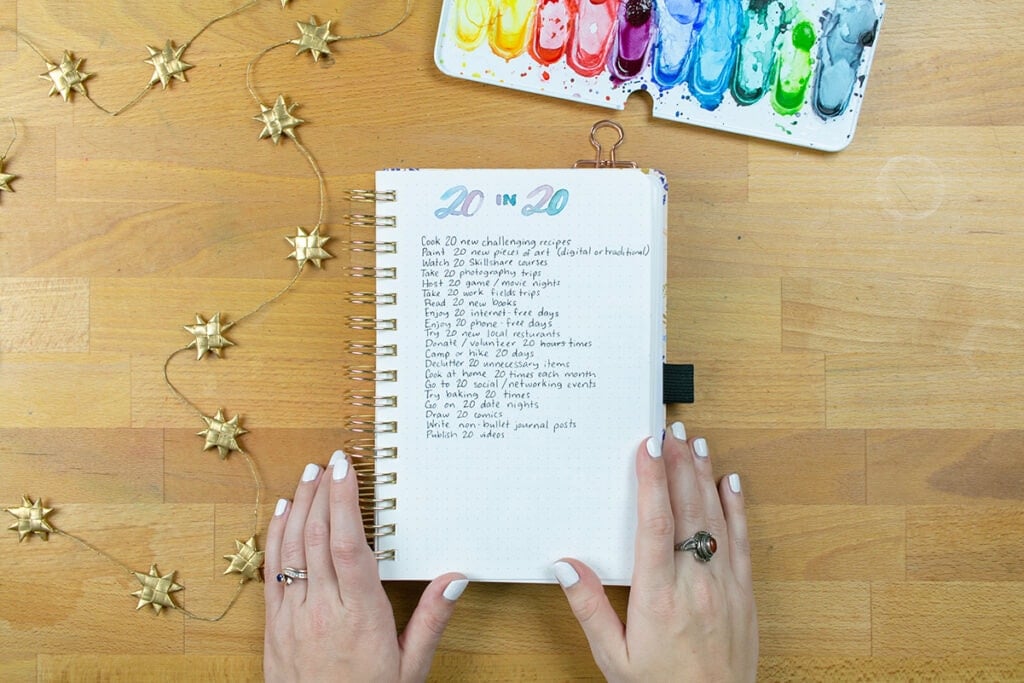 20 IN 20
Cook 20 new challenging recipes
Paint 20 new pieces of art (digital or traditional)
Watch 20 Skillshare courses
Take 20 photography trips
Host 20 game / movie nights
Take 20 work fields trips
Read 20 new books
Enjoy 20 internet-free days
Enjoy 20 phone-free days
Try 20 new local resturants
Donate / volunteer 20 hours times
Camp or hike 20 days
Declutter 20 unnecessary items
Cook at home 20 times each month
Go to 20 social / networking events
Try baking 20 times
Go on 20 date nights
Draw 20 comics
Write non-bullet journal posts
Publish 20 videos